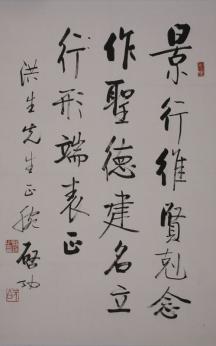 景行維賢剋念
作聖德建名立
行形端表正
洪生先生正腕
啓功